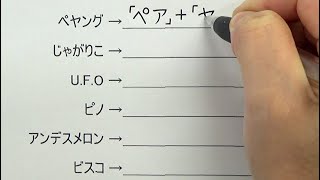 ペヤング → 「ペア」+「ヤ
じゃがりこ →
U.F.O →
ピノ →
アンデスメロン →
ビスコ →